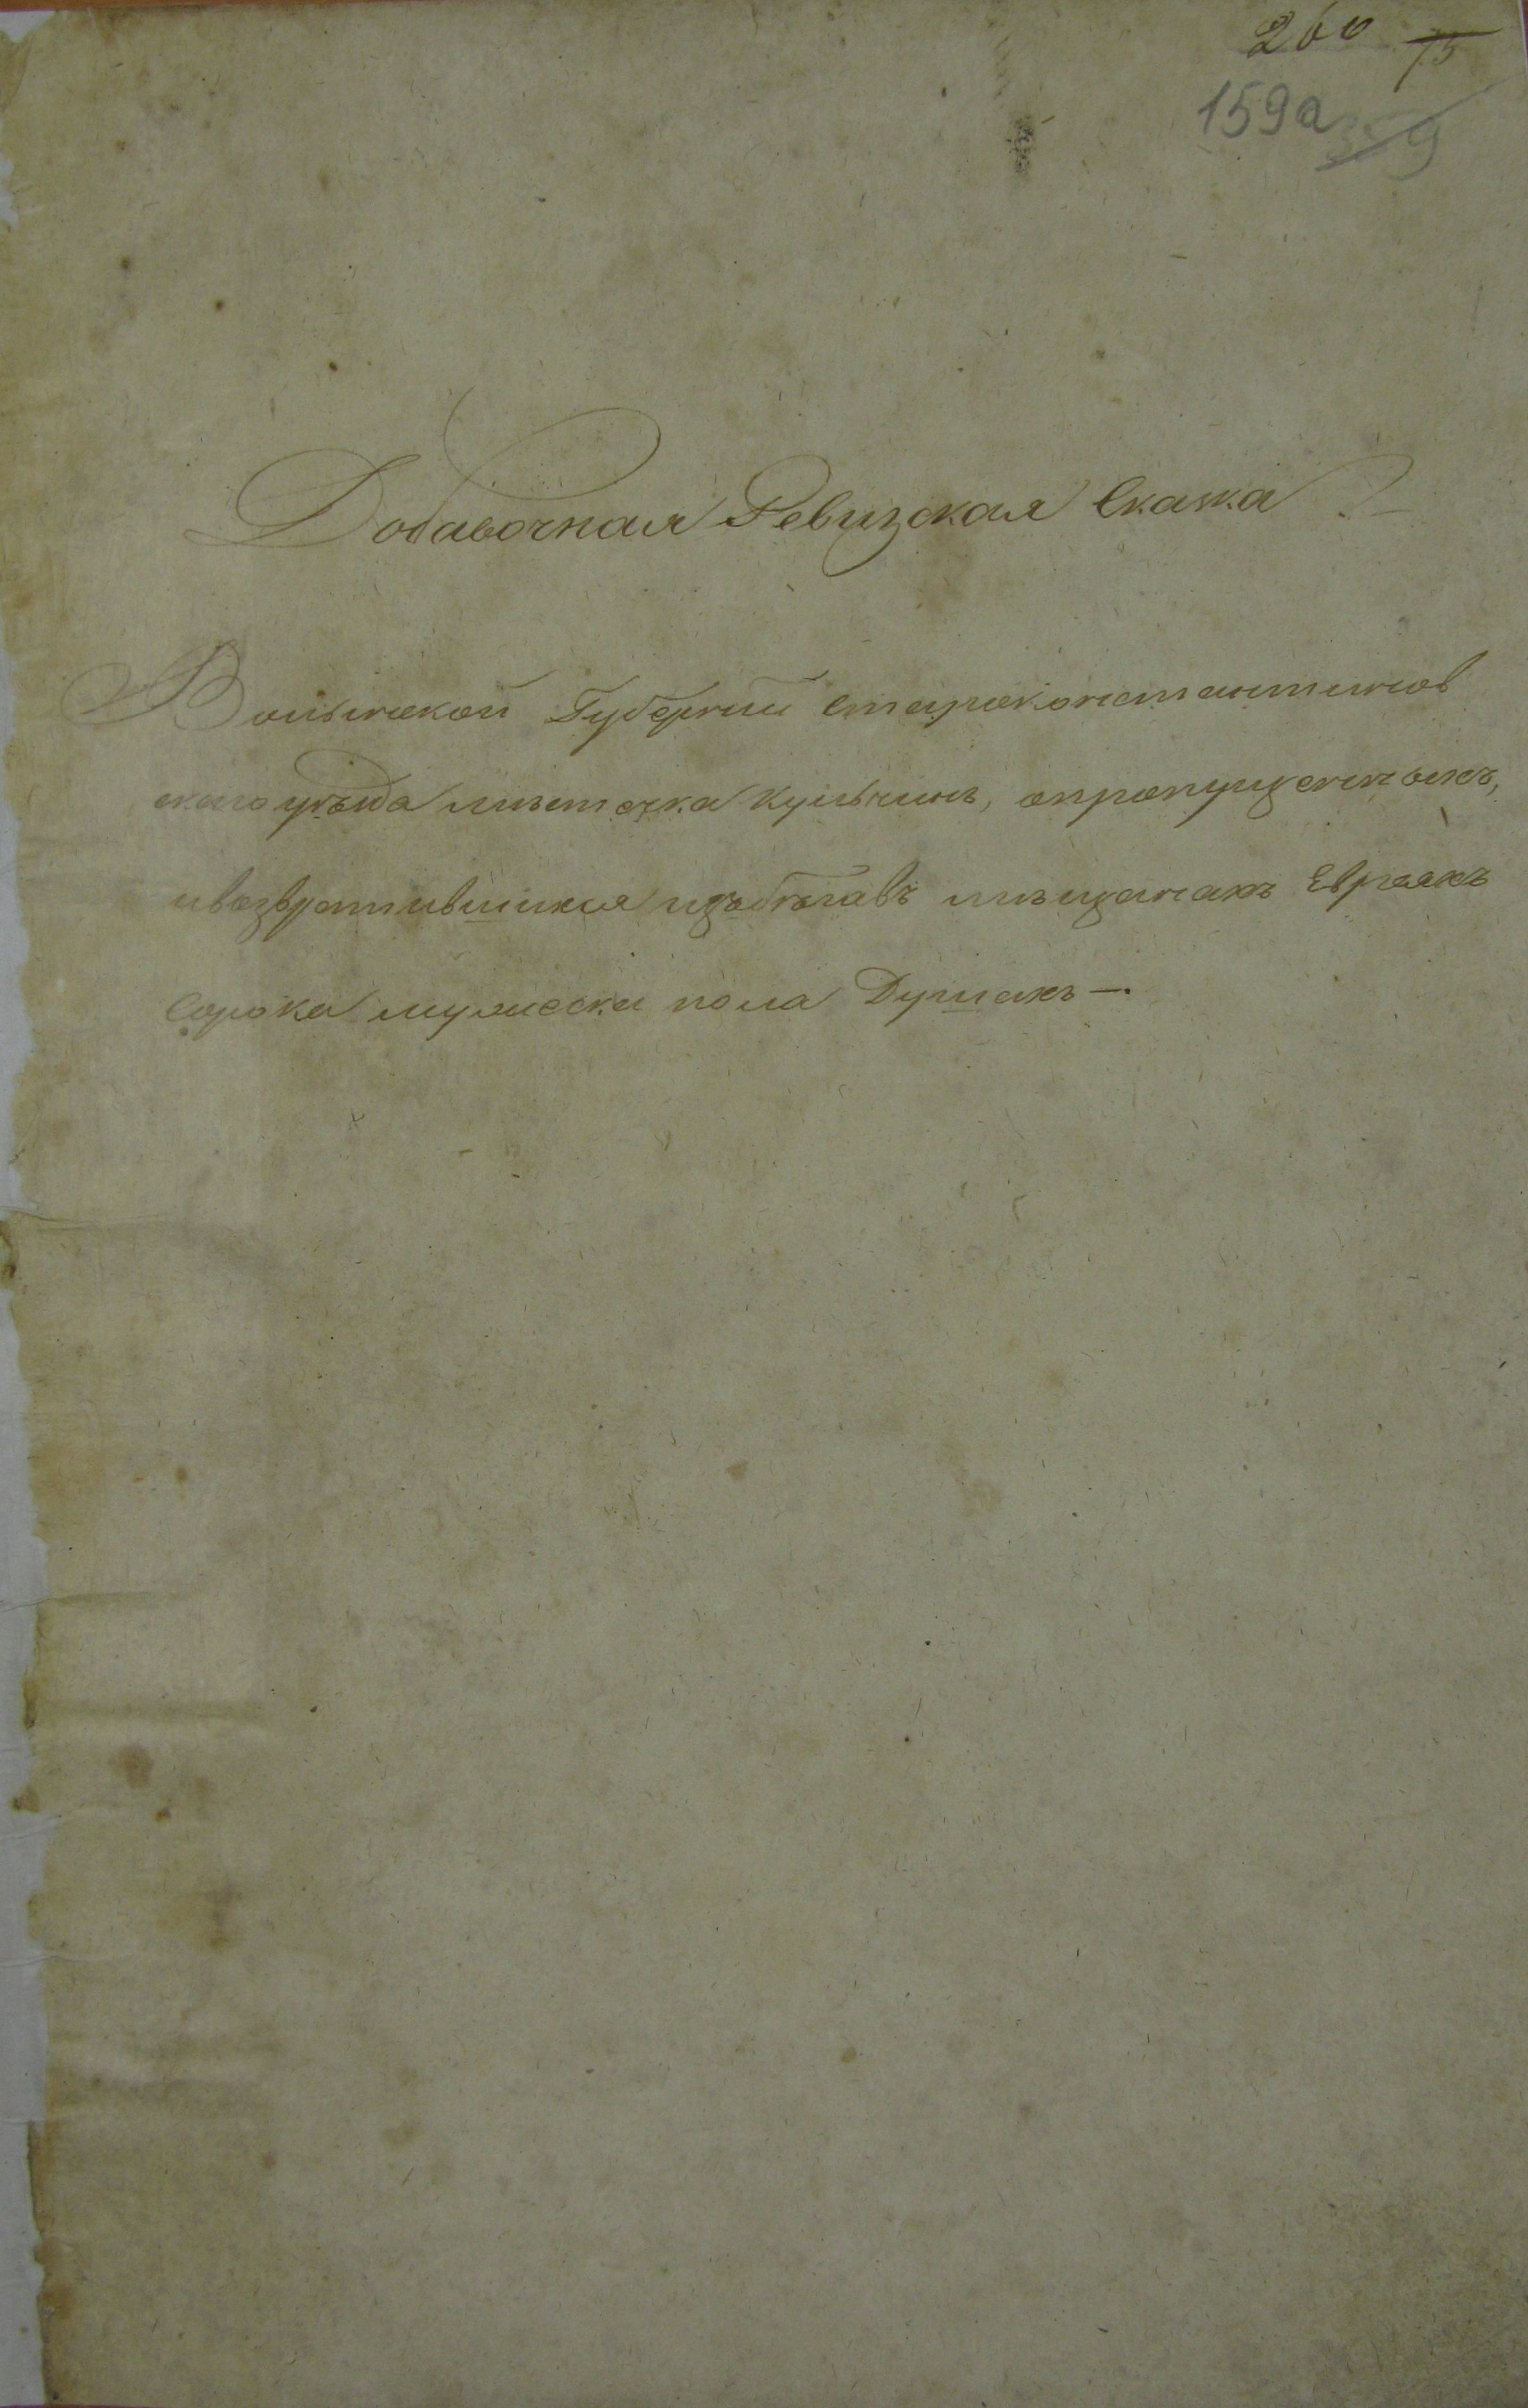 260 75
159а
Добавочная Ревизская Сказка
Волынской Губернии Староконстантинов
скаго уѣзда мѣстечка Кульчинъ, опропущенныхъ,
ивозвратившихся изъбѣговъ мѣщанахъ Евреяхъ
Сорока мужеска пола Душахъ—.